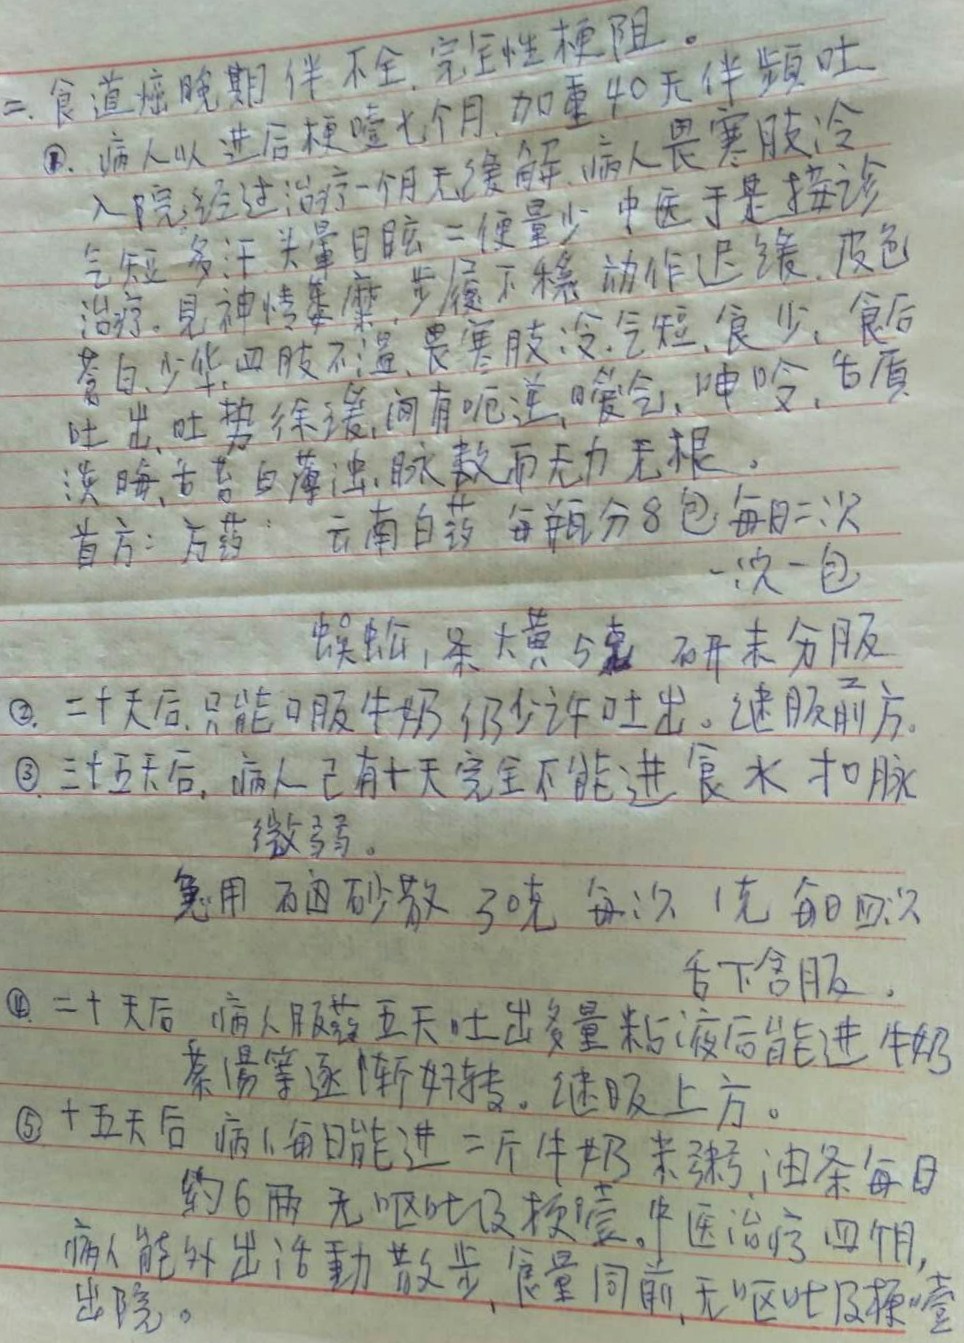 二.食道癌晚期伴不全.完全性梗阻。
①.病人以进后梗噎七个月.加重40天伴频吐
入院.经过治疗一个月无缓解.病人畏寒肢冷
气短多汗.头暈目眩二便量少 中医于是接诊
治疗。見神情萎靡.步履不稳 动作迟缓.皮色
苍白.少华.四肢不温、畏寒肢冷.气短、食少、食后
吐出、吐势徐缓,间有呃逆,嗳气、呻吟、舌质
淡晦、舌苔白薄浊.脉数而无力无根。
首方:方药: 云南白药 每瓶分8包 每日二次
一次一包
蜈蚣1条 大黄5克 研末分服
②.二十天后.只能口服牛奶仍少许吐出。继服前方。
③.三十五天后,病人已有十天完全不能进食水 扣脉
微弱。
急用 硇砂散 30克 每次 1克 每日四次
舌下含服.
④.二十天后 病人服药五天吐出多量粘液后能进牛奶
菜湯等逐渐好转。继服上方。
⑤十五天后 病人每日能进二斤牛奶 米粥,油条每日
约6两 无呕吐及梗噎。中医治疗四个月,
病人能外出活動散步、食量同前,无呕吐及梗噎
出院。